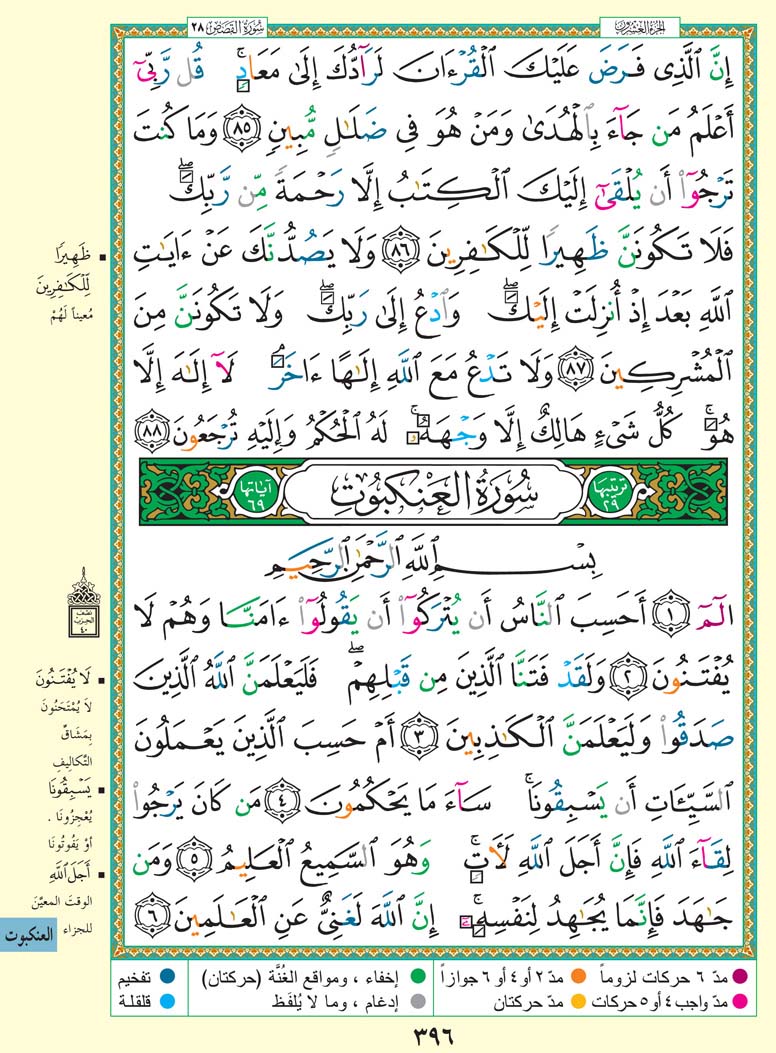 سُورَةُ القَصَصِ ٢٨
الجزء العشرون
إِنَّ ٱلَّذِى فَرَضَ عَلَيْكَ ٱلْقُرْءَانَ لَرَآدُّكَ إِلَىٰ مَعَادٍۚ قُل رَّبِّىٓ
أَعْلَمُ مَن جَآءَ بِٱلْهُدَىٰ وَمَنْ هُوَ فِى ضَلَٰلٍ مُّبِينٍ ٨٥ وَمَا كُنتَ
تَرْجُوٓا۟ أَن يُلْقَىٰٓ إِلَيْكَ ٱلْكِتَٰبُ إِلَّا رَحْمَةً مِّن رَّبِّكَۖ
فَلَا تَكُونَنَّ ظَهِيرًا لِّلْكَٰفِرِينَ ٨٦ وَلَا يَصُدُّنَّكَ عَنْ ءَايَٰتِ
ٱللَّهِ بَعْدَ إِذْ أُنزِلَتْ إِلَيْكَۖ وَٱدْعُ إِلَىٰ رَبِّكَۖ وَلَا تَكُونَنَّ مِنَ
ٱلْمُشْرِكِينَ ٨٧ وَلَا تَدْعُ مَعَ ٱللَّهِ إِلَٰهًا ءَاخَرَۘ لَآ إِلَٰهَ إِلَّا
هُوَۚ كُلُّ شَىْءٍ هَالِكٌ إِلَّا وَجْهَهُۥۚ لَهُ ٱلْحُكْمُ وَإِلَيْهِ تُرْجَعُونَ ٨٨
ترتيبها ٢٩ سُورَةُ العَنكَبُوتِ آياتها ٦٩
بِسْمِ ٱللَّهِ ٱلرَّحْمَٰنِ ٱلرَّحِيمِ
الٓمٓ ١ أَحَسِبَ ٱلنَّاسُ أَن يُتْرَكُوٓا۟ أَن يَقُولُوٓا۟ ءَامَنَّا وَهُمْ لَا
يُفْتَنُونَ ٢ وَلَقَدْ فَتَنَّا ٱلَّذِينَ مِن قَبْلِهِمْۖ فَلَيَعْلَمَنَّ ٱللَّهُ ٱلَّذِينَ
صَدَقُوا۟ وَلَيَعْلَمَنَّ ٱلْكَٰذِبِينَ ٣ أَمْ حَسِبَ ٱلَّذِينَ يَعْمَلُونَ
ٱلسَّيِّـَٔاتِ أَن يَسْبِقُونَاۚ سَآءَ مَا يَحْكُمُونَ ٤ مَن كَانَ يَرْجُوا۟
لِقَآءَ ٱللَّهِ فَإِنَّ أَجَلَ ٱللَّهِ لَـَٔاتٍۚ وَهُوَ ٱلسَّمِيعُ ٱلْعَلِيمُ ٥ وَمَن
جَٰهَدَ فَإِنَّمَا يُجَٰهِدُ لِنَفْسِهِۦٓۚ إِنَّ ٱللَّهَ لَغَنِىٌّ عَنِ ٱلْعَٰلَمِينَ ٦
ظَهِيرًا
لِّلْكَٰفِرِينَ
مُعيناً لَهُمْ
نصف
الحزب
٤٠
لَا يُفْتَنُونَ
لا يُمْتَحَنُونَ
بِمَشَاقِّ
التَّكاليفِ
يَسْبِقُونَا
يُعْجِزُونَا .
أوْ يَفُوتُونَا
أَجَلَ ٱللَّهِ
الوقتَ المعيَّن
للجزاء
العنكبوت
مدّ ٦ حركات لزوماً
مدّ ٢ أو ٤ أو ٦ جوازاً
إخفاء ، ومواقع الغُنَّة (حركتان)
تفخيم
مدّ واجب ٤ أو ٥ حركات
مدّ حركتان
إدغام ، وما لا يُلفَظ
قلقلة
٣٩٦